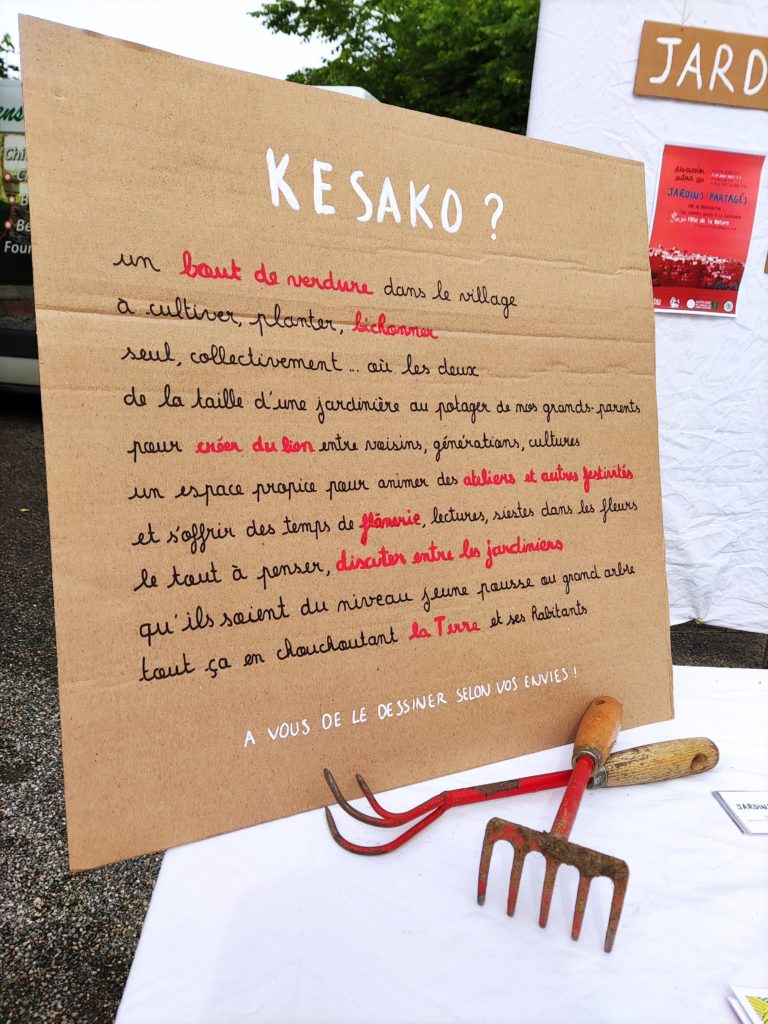 KESAKO ?
un bout de verdure dans le village
à cultiver, planter, bichonner
seul, collectivement ... où les deux
de la taille d'une jardinière au potager de nos grands-parents
pour créer du lien entre voisins, générations, cultures
un espace propice pour animer des ateliers et autres festivités
et s'offrir des temps de flânerie, lectures, siestes dans les fleurs
le tout à penser, discuter entre les jardiniers
qu'ils soient du niveau jeune pousse ou grand arbre
tout ça en chouchoutant la Terre et ses habitants
A VOUS DE LE DESSINER SELON VOS ENVIES !
JARD
discussion
autour des
JARDINS PARTAGÉS
Fête de la Nature
JARDINS